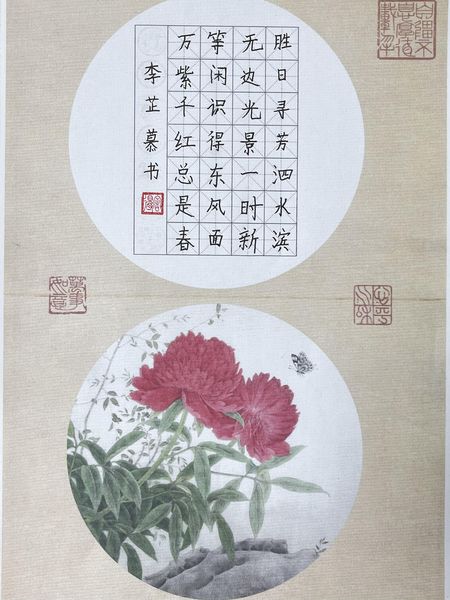 胜日寻芳泗水滨
无边光景一时新
等闲识得东风面
万紫千红总是春
李芷慕书